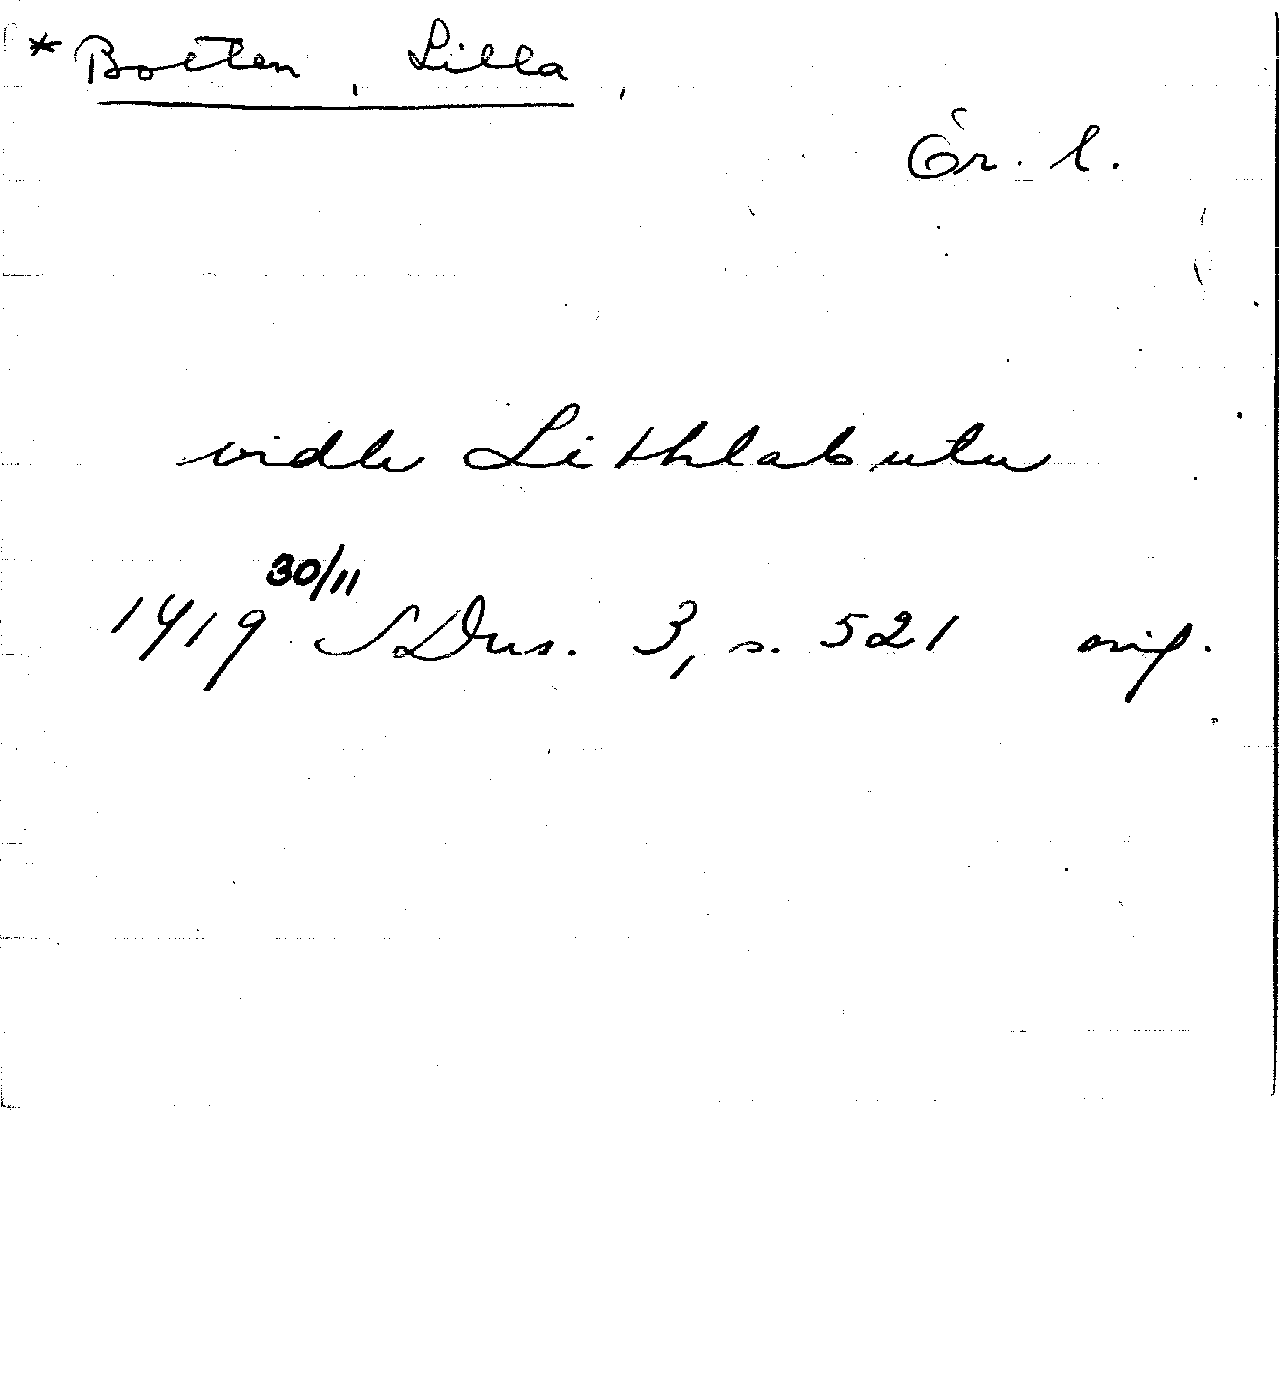 *Botten, Lilla,
Ör. l.
vidh Lithlabutn
30/11
1419 SDns. 3, s. 521 orig.